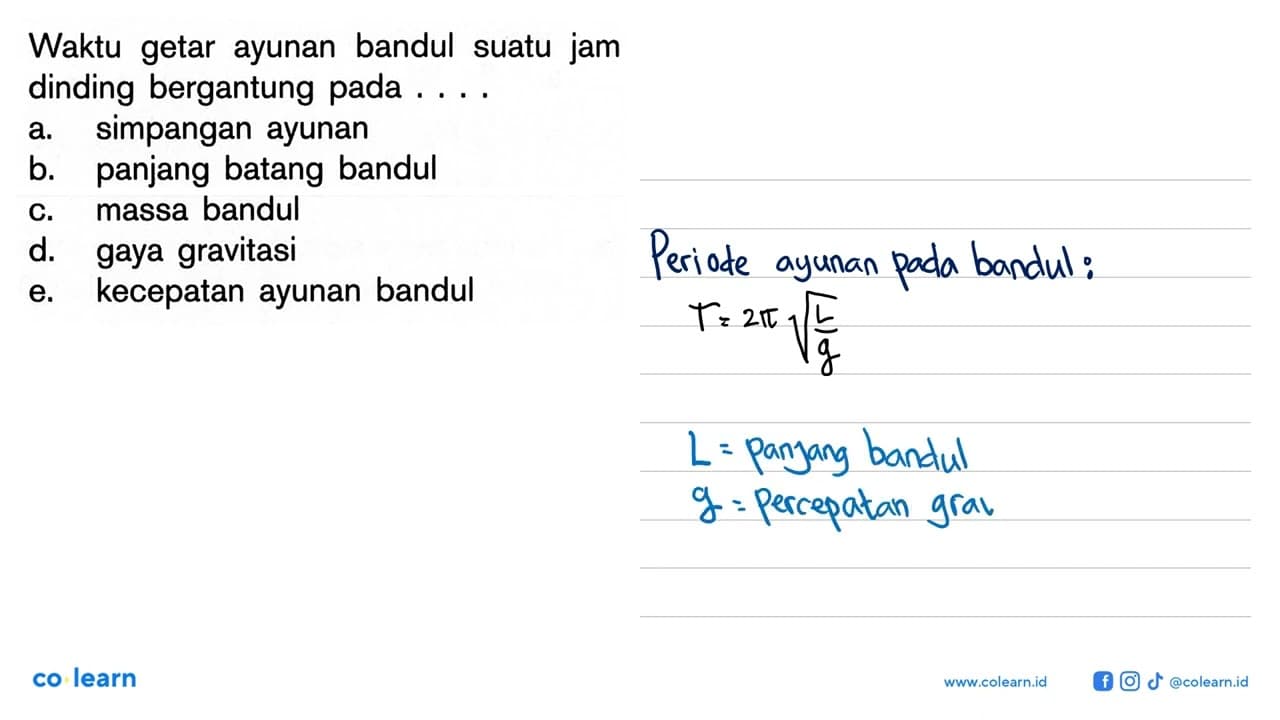 Waktu getar ayunan bandul suatu jam
dinding bergantung pada . . . .
a. simpangan ayunan
b. panjang batang bandul
c. massa bandul
d. gaya gravitasi
e. kecepatan ayunan bandul
Periode ayunan pada bandul :
T = 2π √(L/g)
L = panjang bandul
g = percepatan grav
co learn
www.colearn.id @colearn.id